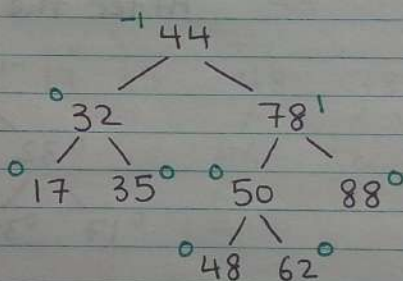 -1 44
0 32 78 1
0 17 35 0 0 50 88 0
0 48 62 0